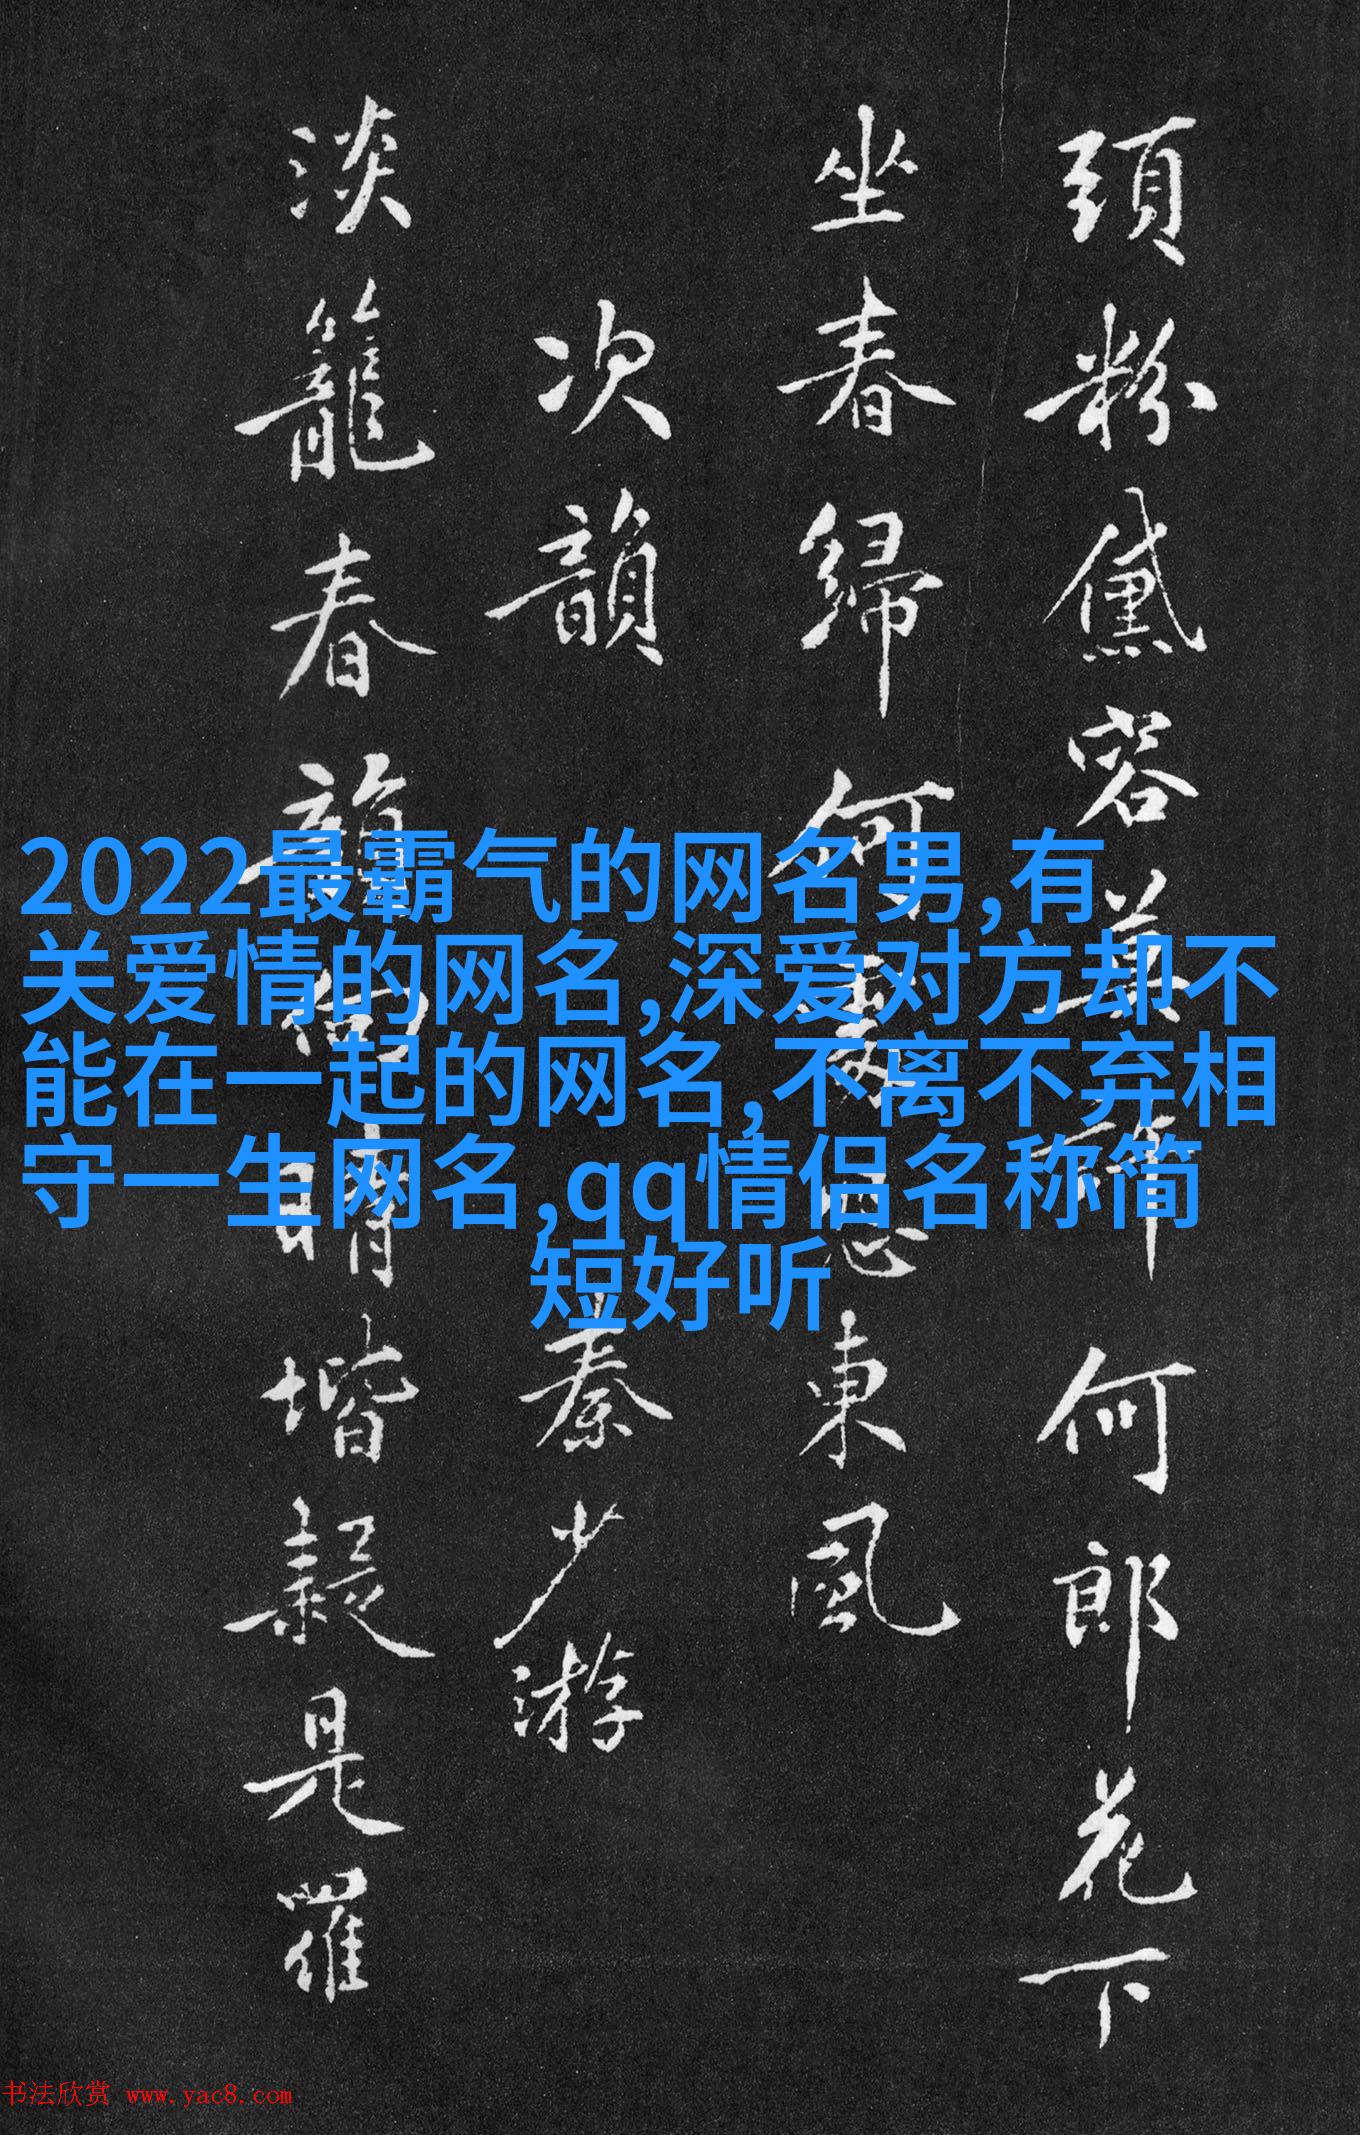 頭粉黛容莫許何郎花下
坐春歸何處怨東風
次韻秦少游
淡籠春韻向晴堦疑是羅
2022最霸气的网名男,有
关爱情的网名,深爱对方却不
能在一起的网名,不离不弃相
守一生网名,qq情侣名称简
短好听
书法欣赏 www.yac8.com